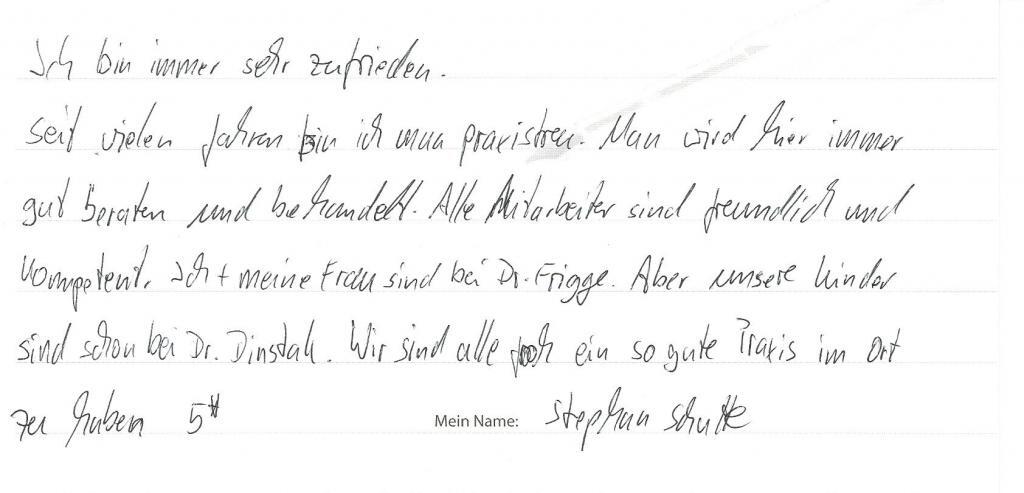 Ich bin immer sehr zufrieden.
Seit vielen Jahren bin ich nun praxistreu. Man wird hier immer
gut beraten und behandelt. Alle Mitarbeiter sind freundlich und
kompetent. Ich + meine Frau sind bei Dr. Frigge. Aber unsere Kinder
sind schon bei Dr. Dinstak. Wir sind alle froh ein so gute Praxis im Ort
zu haben 5*
Mein Name: Stephan Schulte